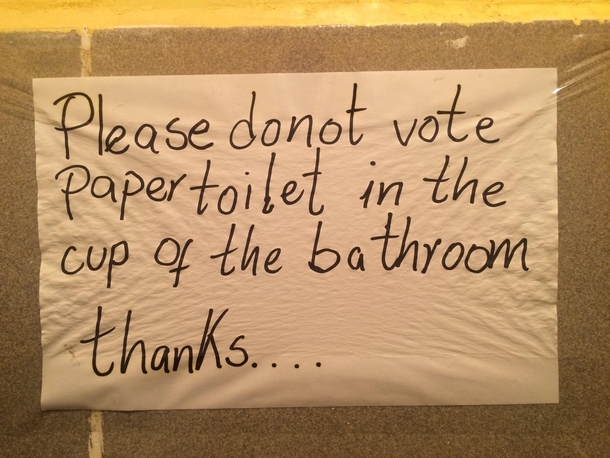 Please donot vote
Paper toilet in the
cup of the bathroom
thanks....